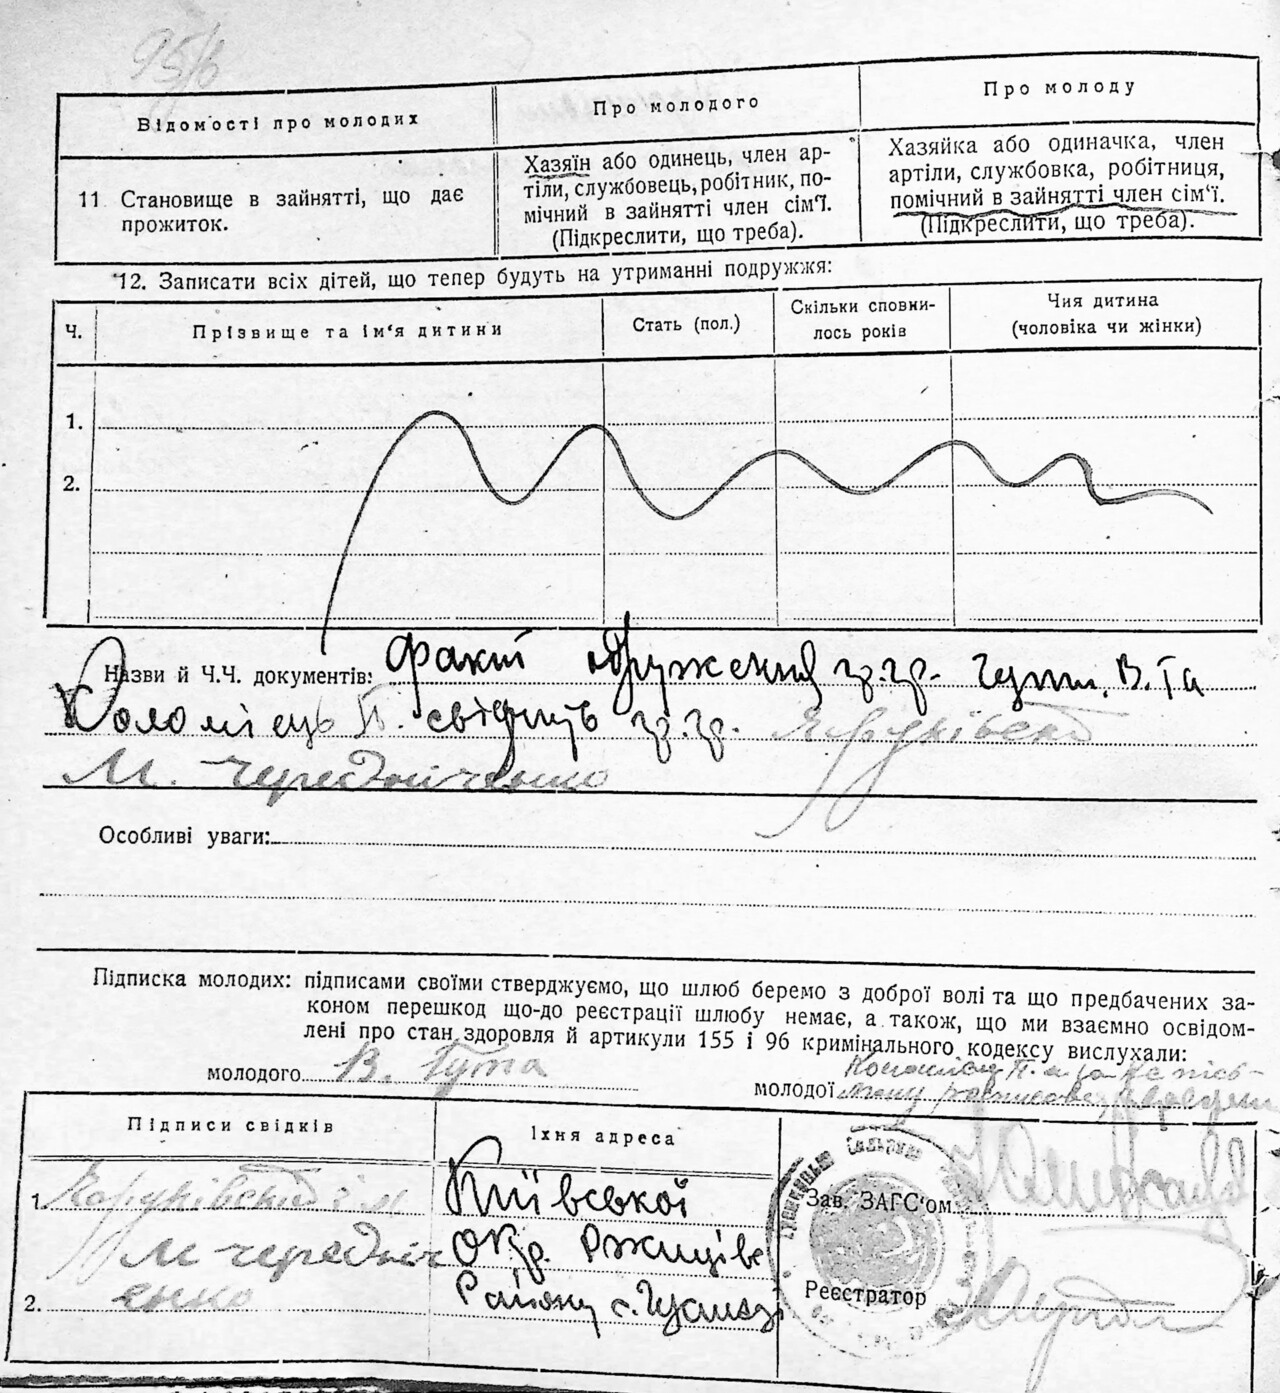 95/6
Відомості про молодих
Про молодого
Про молоду
11 Становище в зайнятті, що дає
прожиток.
Хазяїн або одинець, член ар-
тіли, службовець, робітник, по-
мічний в зайнятті член сім'ї.
(Підкреслити, що треба).
Хазяйка або одиначка, член
артіли, службовка, робітниця,
помічний в зайнятті член сім'ї.
(Підкреслити, що треба).
12. Записати всіх дітей, що тепер будуть на утриманні подружжя:
Ч.
Прізвище та ім'я дитини
Стать (пол.)
Скільки сповни-
лось років
Чия дитина
(чоловіка чи жінки)
1.
2.
Назви й Ч.Ч. документів: Факт одруження гр.гр. Гути В. та
Коломієць П. свідчуть гр.гр.
М. Чередніченко
Особливі уваги:
Підписка молодих: підписами своїми стверджуємо, що шлюб беремо з доброї волі та що предбачених за-
коном перешкод що-до реєстрації шлюбу немає, а також, що ми взаємно освідом-
лені про стан здоровля й артикули 155 і 96 кримінального кодексу вислухали:
молодого В. Гута
молодої
Підписи свідків
Їхня адреса
1.
М Чередніч
2. енко
Київської
Окр. Ржищівс
Району с.
Зав. ЗАГС'ом
Реєстратор